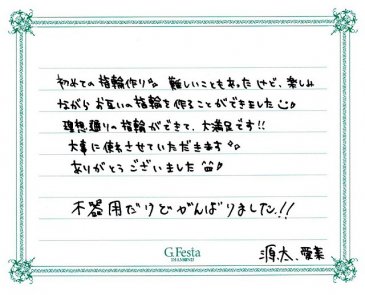 初めての指輪作り♪ 難しいこともあったけど、楽しみ
ながらお互いの指輪を作ることができました☺♪
理想通りの指輪ができて、大満足です!!
大事に使わさせていただきます✧。
ありがとうございました☺♪
不器用だけどがんばりました!!
G.Festa
DIAMOND
源太、愛美